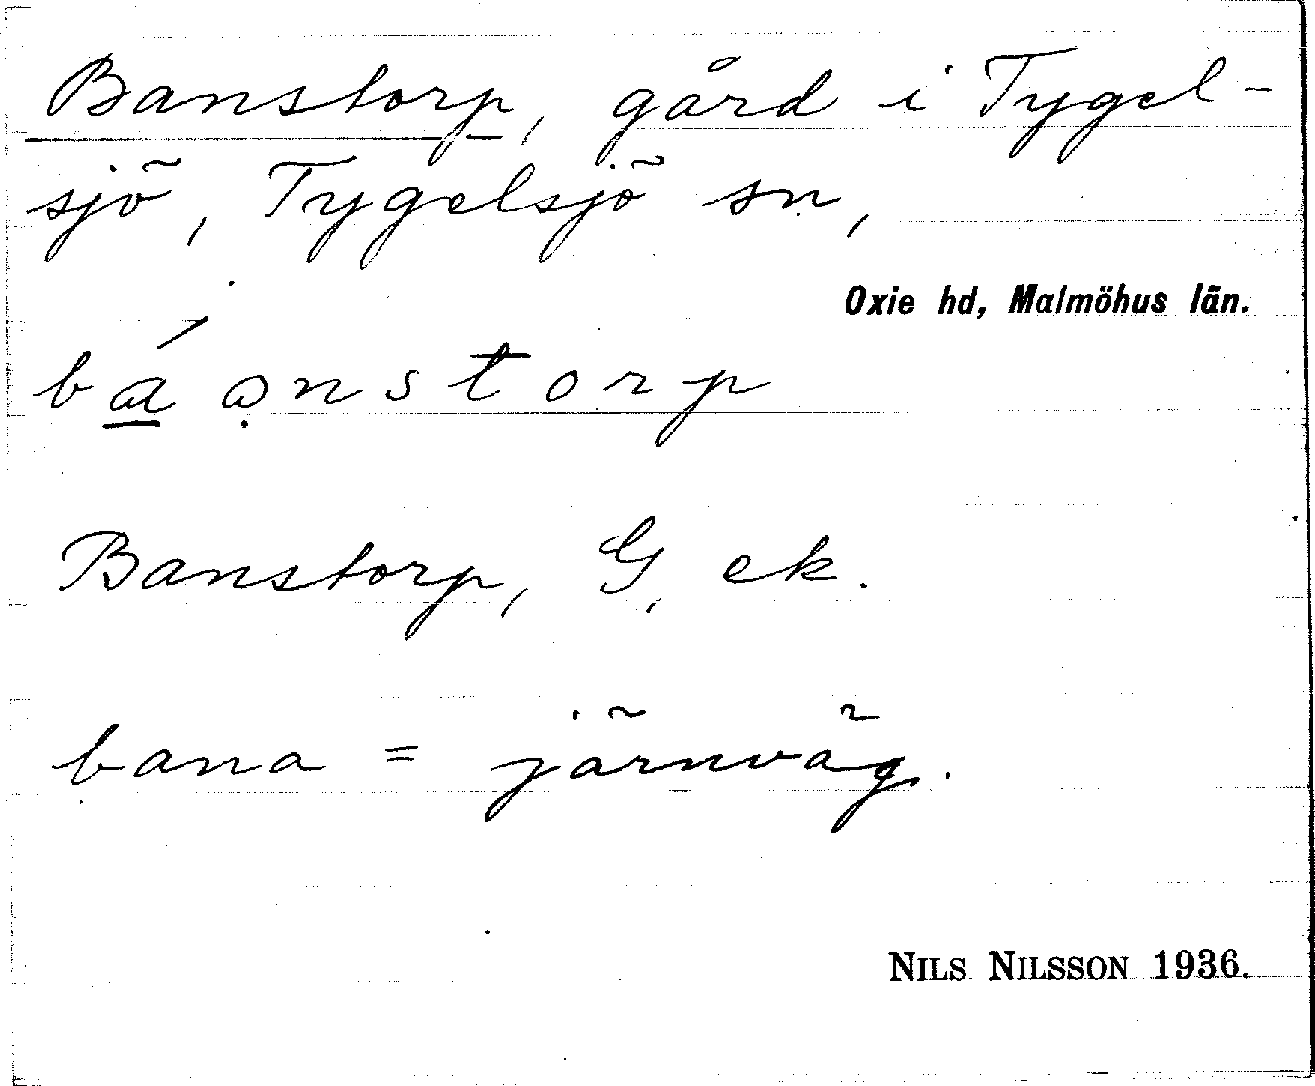 Banstorp, gård i Tygel-
sjö, Tygelsjö sn,
Oxie hd, Malmöhus län.
Banstorp, G, ek.
bana = järnväg.
NILS NILSSON 1936.